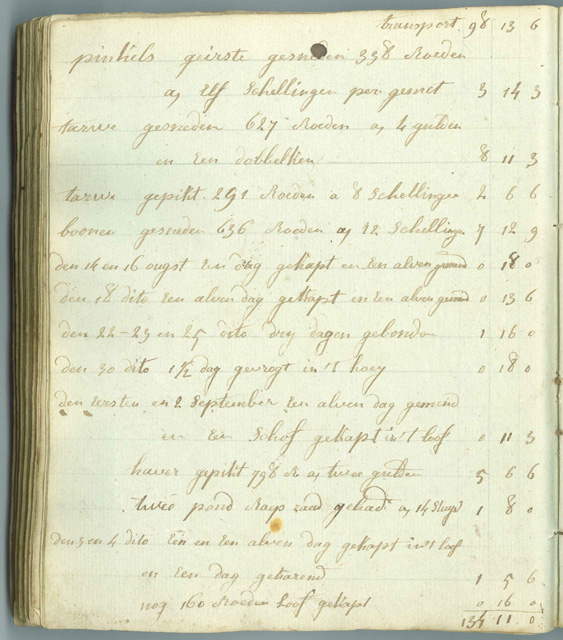 transport 98 13 6
pinkels geirste gesneden 338 Roeden
a Elf Schellingen per gemet 3 14 3
tarwe gesneden 627 Roeden a 4 gulden
en Een dobbelken 8 11 3
tarwe gepikt 291 Roeden a 8 Schellingen 2 6 6
boonen gesneden 636 Roeden a 12 Schellinge 7 12 9
den 14 en 16 ougst Een dag gekapt en Een alven 0 18 0
den 18 dito Een alven dag gekapt en Een alven 0 13 6
den 22 - 23 en 25 dito dry dagen gebonden 1 16 0
den 30 dito 1 1/2 dag gevrogt in't hoey 0 18 0
den Eersten en 2 September Een alven dag gemend
en Een Schof gekapt in't loof 0 11 3
haver gepikt 798 R a twee gulden 5 6 6
twee pond Raap zaad gehadt a 14 1 8 0
den 3 en 4 dito Eén en Een alven dag gekapt in't loof
en Een dag 1 5 6
nog 160 Roeden Loof gekapt 0 16 0
134 11 0